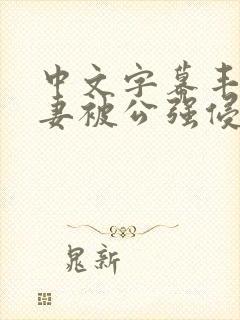 中文字幕丰
妻被公强侵
晁新